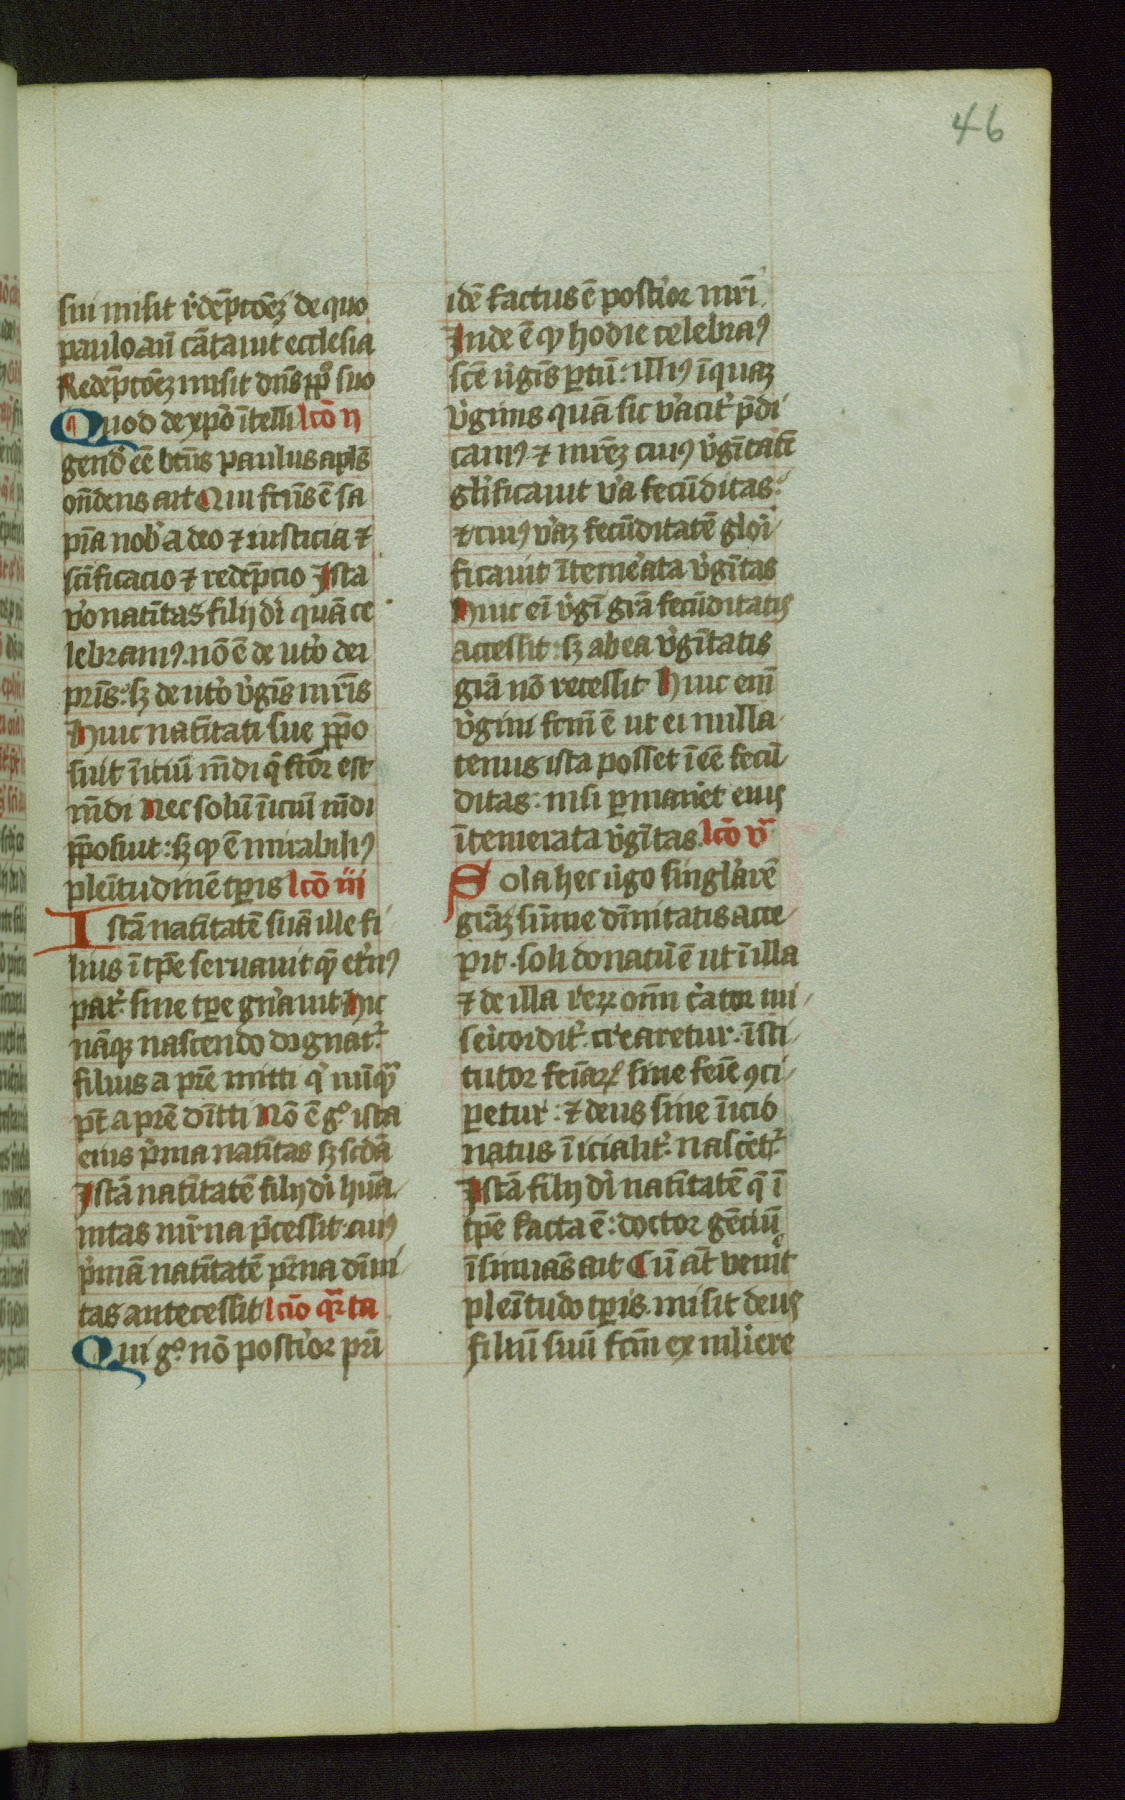 46
sui misit r̾dēpc̄oēz de quo
paulo an̄ cātauit ecclesia
Redēpc̄oēz misit dn̄s pp̄lo suo
Quod de xp̄o ītelli lc̄o ij
gend̾ eē bt̄us paulus apl̄s
on̄dens ait Qui fc̄us ē sa
pīa nob̾ a deo ⁊ iusticia ⁊
sc̄ificacio ⁊ redēpcio Ista
v̾o natīitas filij dī quā ce
lebram⁹. nō ē de vt̾o dei
pr̄is: sz de vt̾o v̾gīs mr̄is
Huic natīitati sue pp̄o
suit īiciū mūdi q̄ fc̄or est
mūdi Nec solū īiciū mūdi
pp̄osuit: sz qp ē mirabili⁹
pleītudinē tp̄is lc̄o iij
Istā natīitatē suā ille fi
lius ī tp̄e seruauit q̄ et̾n⁹
pat̾ sine tp̄e gn̄auit Hic
nāqz nascendo dignat̾
filius a pr̄e mitti q̾ nūqȝ
pt̄ a pr̄e dītti Nō ē gº ista
eius p̾ma natīitas sz sc̄dā
Istā natīitatē filij dī hūa
nitas mr̄na p̄cessit. cui⁹
p̾mā natīitatē pr̄na dīni
tas antecessit lc̄io qr̄ta
Qui gº nō post̾ior pr̄i
idē factus ē post̾ior mr̄i
Inde ē qp hodie celebra⁹
sc̄e v̾gīs p̱tū: illi⁹ īquaz
v̾ginis quā sic v̾acit̾ p̄di
cam⁹ ⁊ mr̄ez cui⁹ v̾gītatē
gl̄ificauit v̾a fecūditas:
⁊ cui⁹ v̾az fecūditatē glor̾i
ficauit ītem̾ata v̾gītas
Huic eī v̾gī grā fecūditatis
accessit: sz ab ea v̾gītatis
grā nō recessit Huic enī
v̾gini fc̄m ē ut ei nulla
tenus ista posset ī eē fecū
ditas: nisi p̱maner̾et eius
ītemerata v̾gītas. lc̄o v̄
Sola hec v̾go singl̾arē
grāz sūme dīnitatis acce
pit. soli donatū ē ut ī illa
⁊ de illa r̾erꝝ oīm c̾ator mi
sericordit̾ crearetur. īsti
tutor feīarꝝ sine feīe ꝯci
p̱etur: ⁊ deus sine īicio
natus īicialit̾ nascēt̾
Istā filij dī natīitatē q̄ ī
tp̄e facta ē: doctor gēciū
īsinuās ait Cū at̄ venit
pleītudo tp̄is. misit deus
filiū suū fc̄m ex muliere